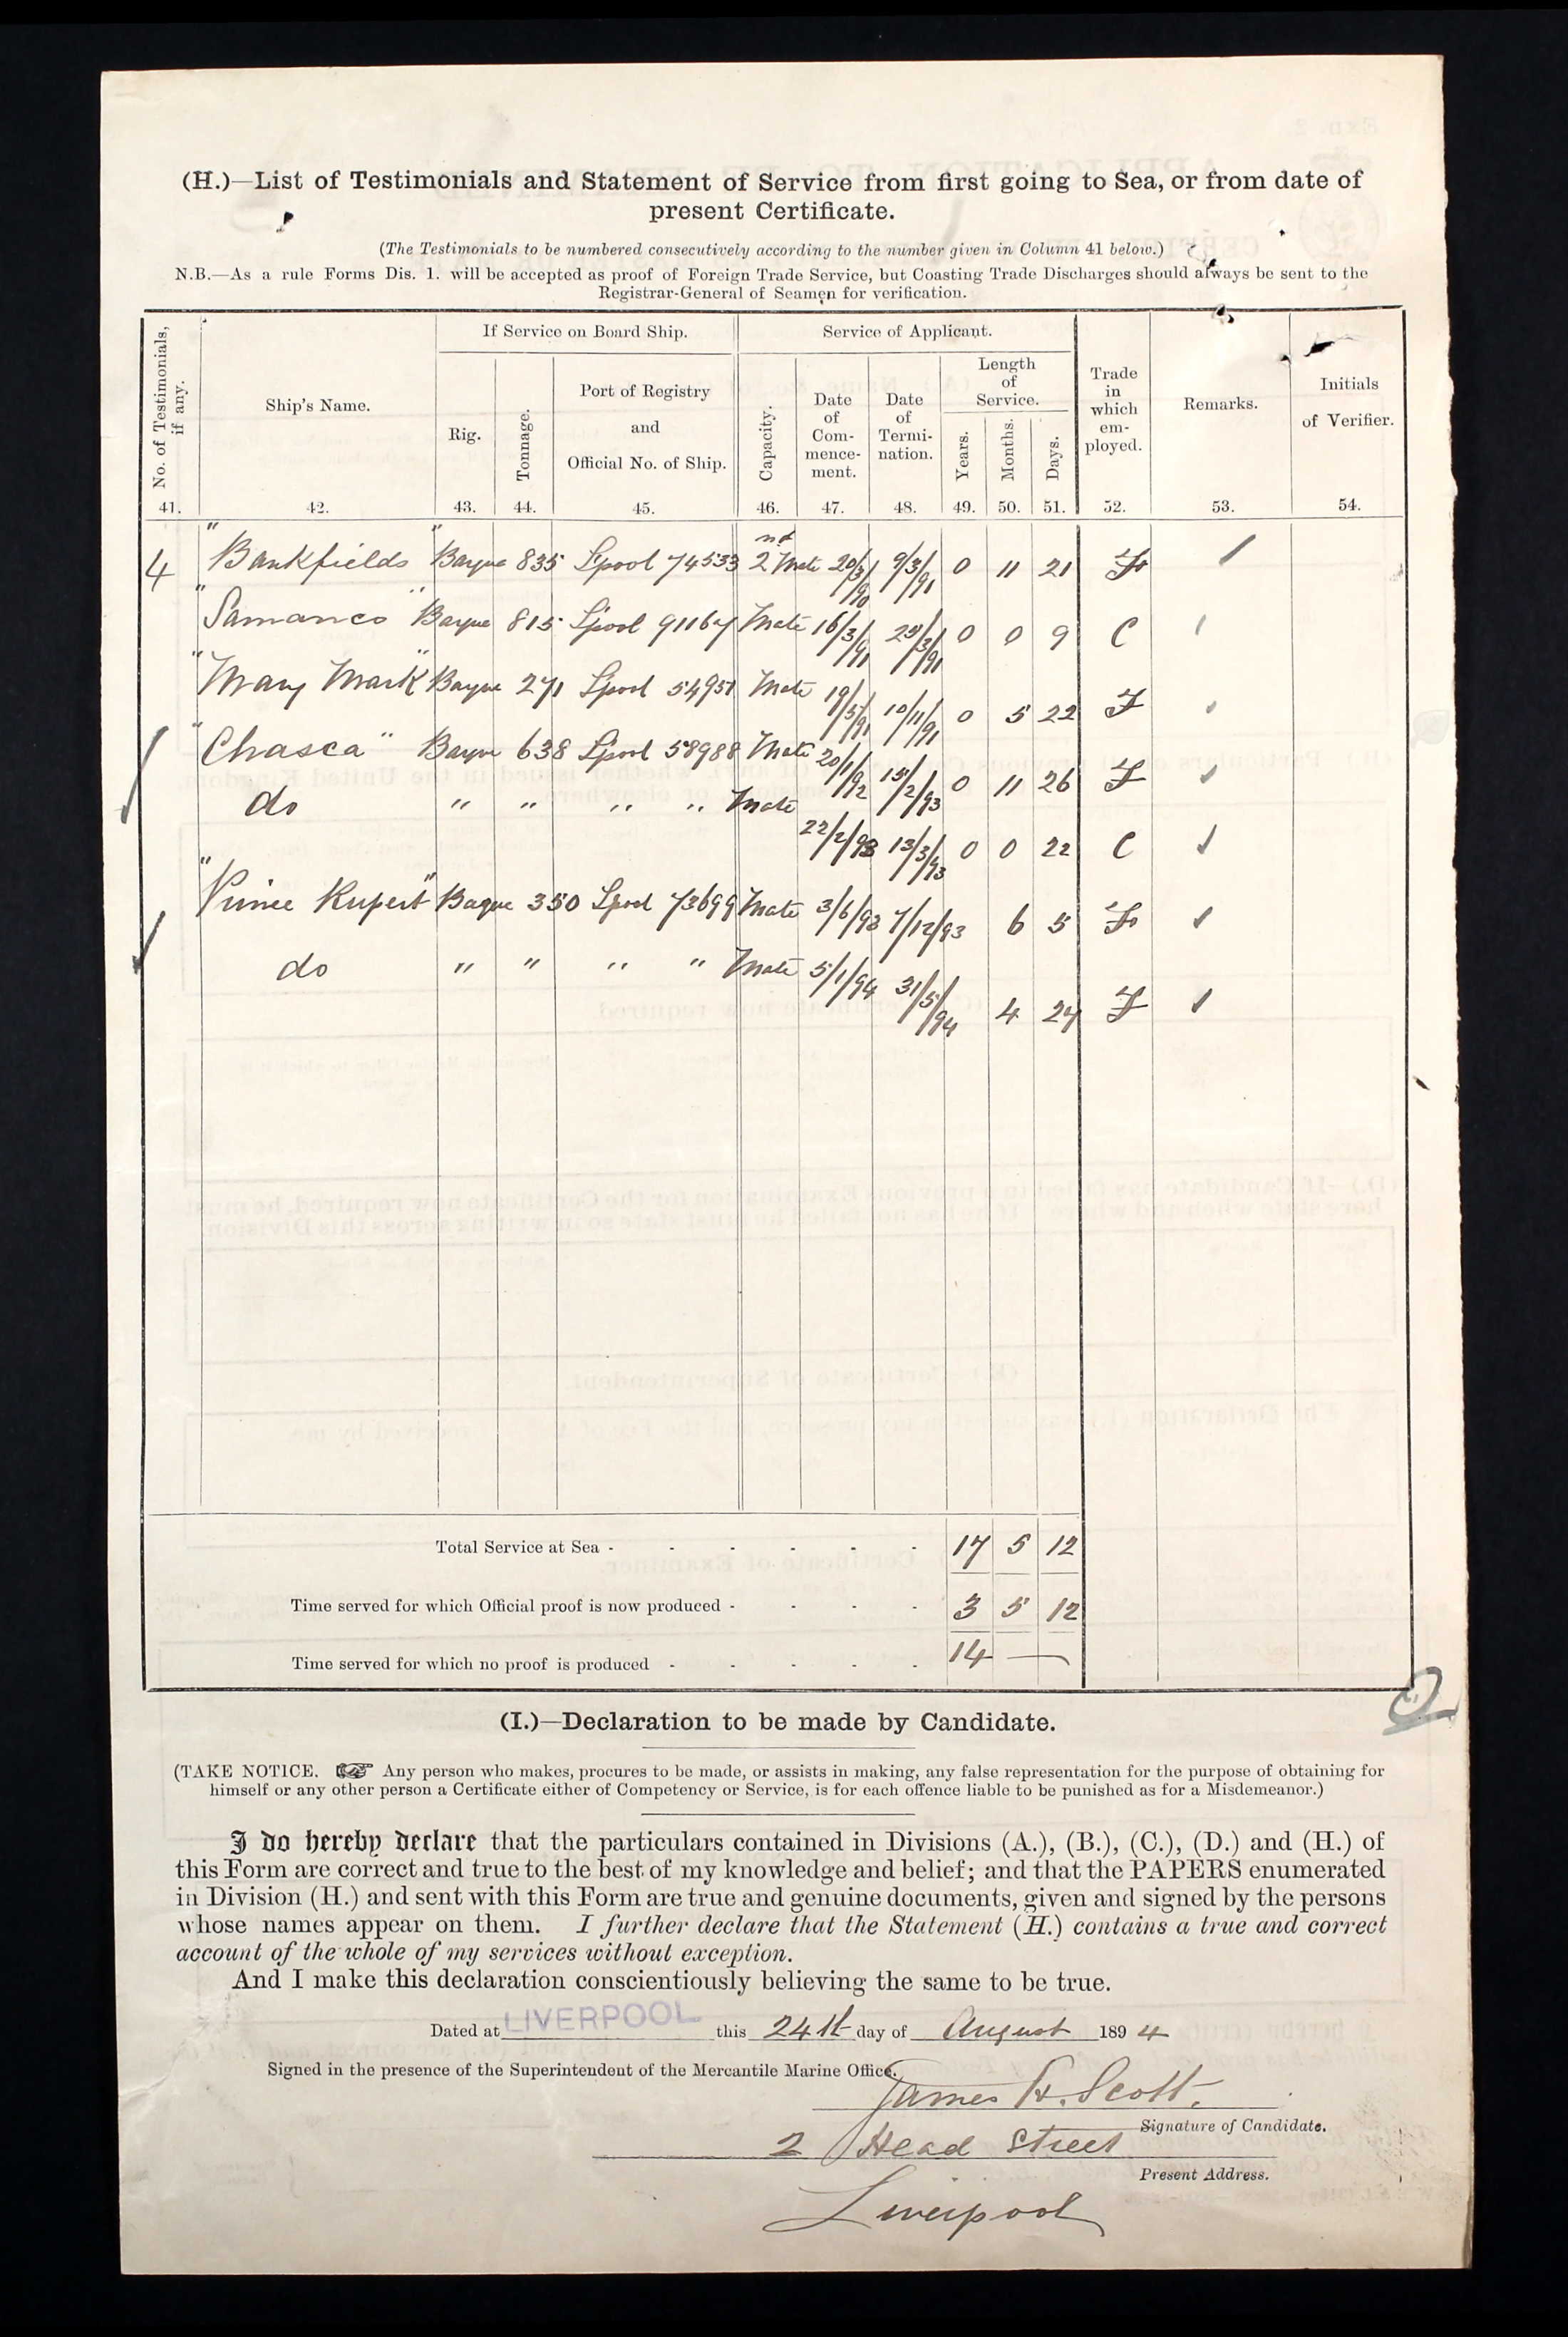 (H.)—List of Testimonials and Statement of Service from first going to Sea, or from date of
present Certificate.
(The Testimonials to be numbered consecutively according to the number given in Column 41 below.)
N.B.—As a rule Forms Dis. 1. will be accepted as proof of Foreign Trade Service, but Coasting Trade Discharges should always be sent to the
Registrar-General of Seamen for verification.
No. of Testimonials, if any.
Ship's Name.
If Service on Board Ship.
Rig.
Tonnage.
Port of Registry
and
Official No. of Ship.
Service of Applicant.
Capacity.
Date of Com-mence-ment.
Date of Termi-nation.
Length of Service.
Years.
Months.
Days.
Trade in which em-ployed.
Remarks.
Initials
of Verifier.
41. 42. 43. 44. 45. 46. 47. 48. 49. 50. 51. 52. 53. 54.
4 "Bankfields" Barque 835 L'pool 74533 2nd Mate 20/3/90 9/3/91 0 11 21 F
"Samanco" Barque 815 L'pool 91167 Mate 16/3/91 25/3/91 0 0 9 C
"Mary Mark" Barque 271 L'pool 54951 Mate 19/5/91 10/11/91 0 5 22 F
"Chasca" Barque 638 L'pool 58988 Mate 20/1/92 15/2/93 0 11 26 F
do " " " " Mate 22/2/93 13/3/93 0 0 22 C
"Prince Rupert" Barque 350 L'pool 73699 Mate 3/6/93 7/12/93 6 5 F
do " " " " Mate 5/1/94 31/5/94 4 27 F
Total Service at Sea - - - - - - 17 5 12
Time served for which Official proof is now produced - - - - 3 5 12
Time served for which no proof is produced - - - - - 14 —
(I.)—Declaration to be made by Candidate.
(TAKE NOTICE. ☞ Any person who makes, procures to be made, or assists in making, any false representation for the purpose of obtaining for
himself or any other person a Certificate either of Competency or Service, is for each offence liable to be punished as for a Misdemeanor.)
I do hereby declare that the particulars contained in Divisions (A.), (B.), (C.), (D.) and (H.) of
this Form are correct and true to the best of my knowledge and belief; and that the PAPERS enumerated
in Division (H.) and sent with this Form are true and genuine documents, given and signed by the persons
whose names appear on them. I further declare that the Statement (H.) contains a true and correct
account of the whole of my services without exception.
And I make this declaration conscientiously believing the same to be true.
Dated at LIVERPOOL this 24th day of August 1894
Signed in the presence of the Superintendent of the Mercantile Marine Office.
James H. Scott.
Signature of Candidate.
2 Head Street
Present Address.
Liverpool